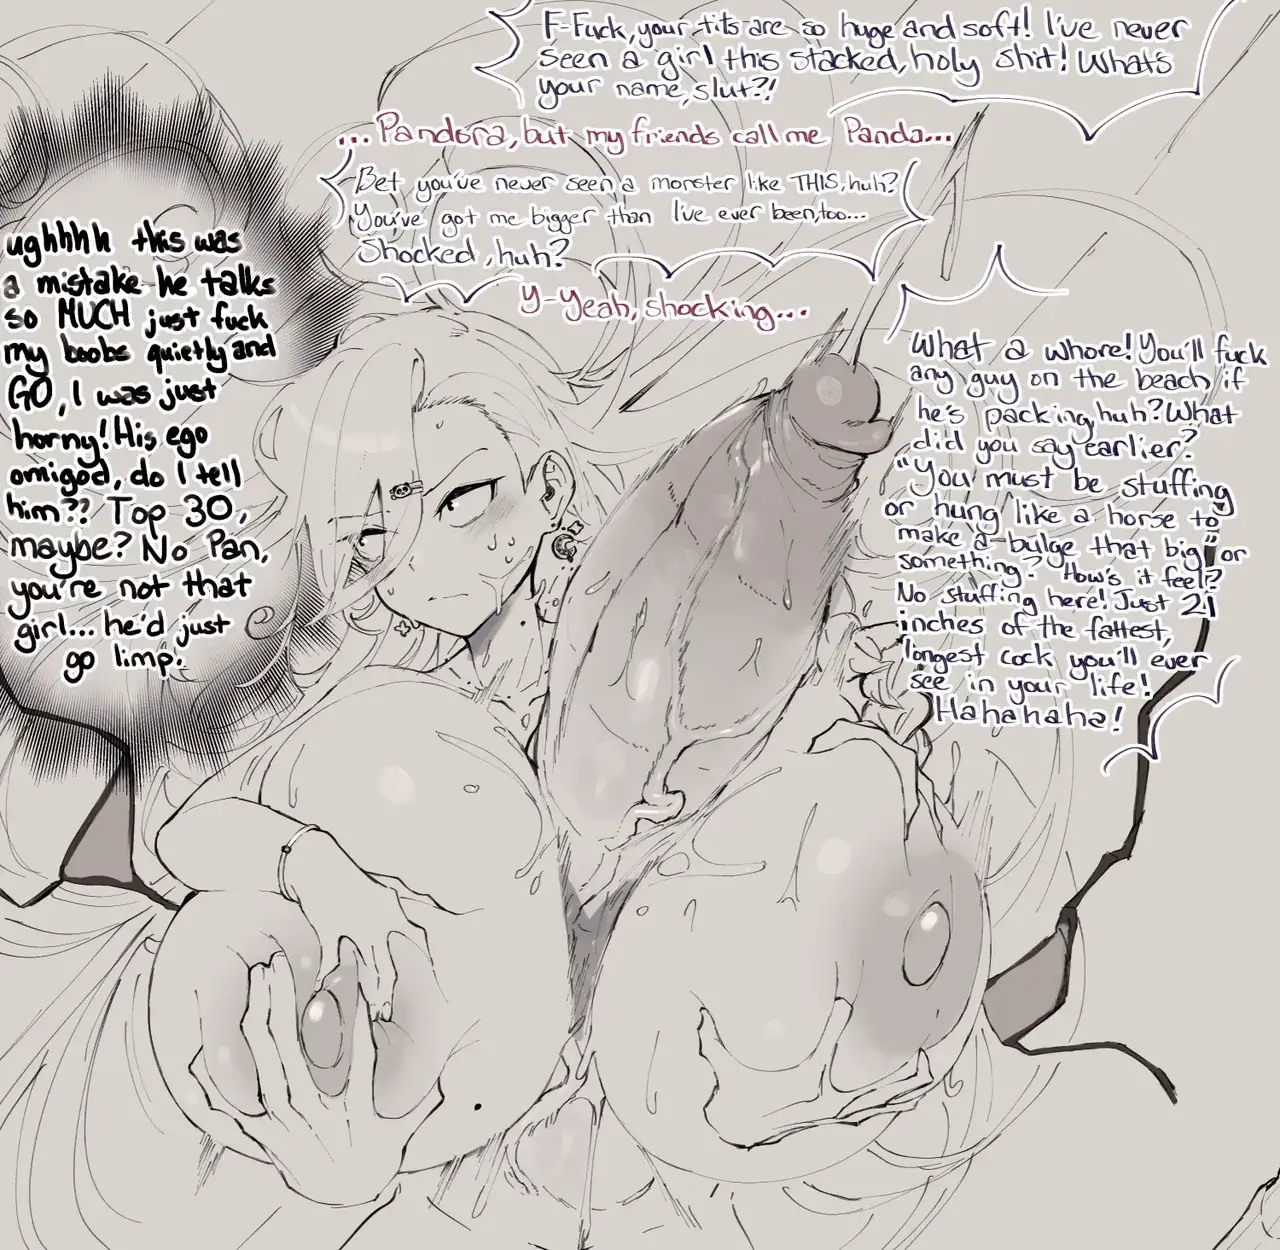 F-Fuck, your tits are so huge and soft! I've never
seen a girl this stacked, holy shit! What's
your name, slut?!
...Pandora, but my friends call me Panda...
Bet you've never seen a monster like THIS, huh?
You've got me bigger than I've ever been, too...
Shocked, huh?
Y-Yeah, shocking...
ughhhh this was
a mistake he talks
so MUCH just fuck
my boobs quietly and
GO, I was just
horny! His ego
omigod, do I tell
him?? Top 30,
maybe? No Pan,
you're not that
girl... he'd just
go limp.
What a whore! You'll fuck
any guy on the beach if
he's packing, huh? What
did you say earlier?
"You must be stuffing
or hung like a horse to
make a bulge that big" or
something? How's it feel?
No stuffing here! Just 21
inches of the fattest,
longest cock you'll ever
see in your life!
Hahahaha!